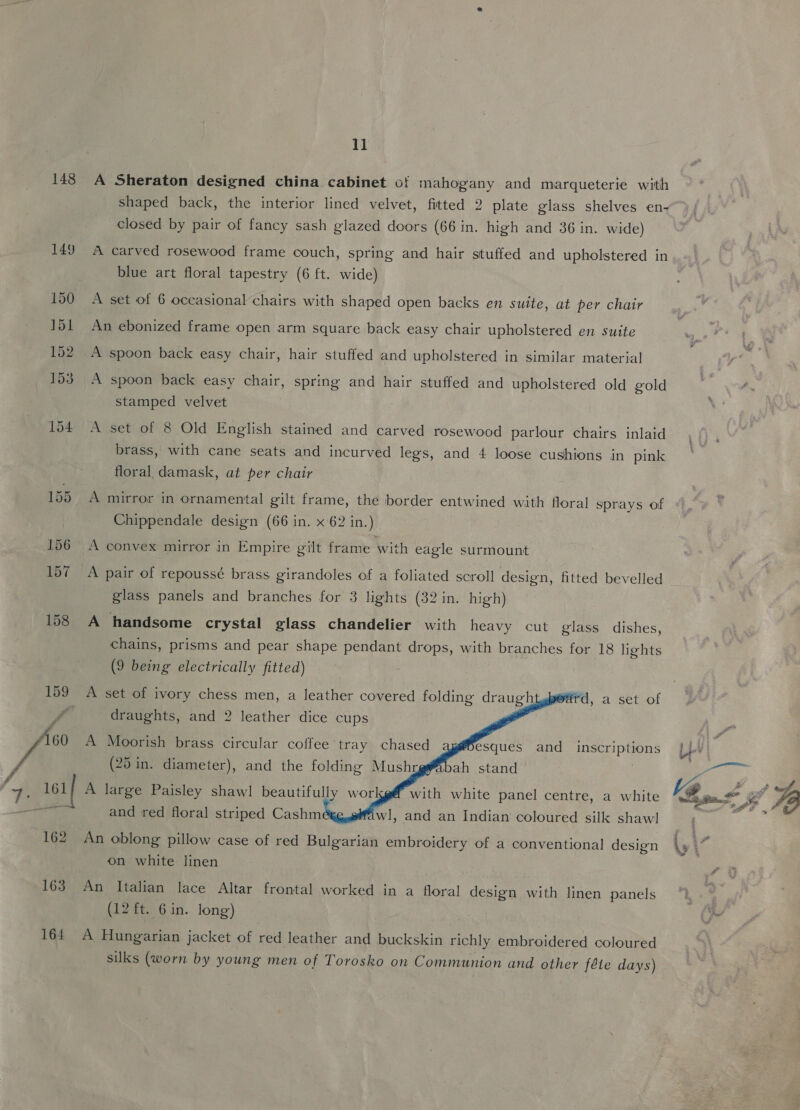 11
148 A Sheraton designed china cabinet of mahogany and marqueterie with
shaped back, the interior lined velvet, fitted 2 plate glass shelves en-
closed by pair of fancy sash glazed doors (66 in. high and 36 in. wide)
149 A carved rosewood frame couch, spring and hair stuffed and upholstered in
blue art floral tapestry (6 ft. wide)
150 A set of 6 occasional chairs with shaped open backs en suite, at per chair
151 An ebonized frame open arm square back easy chair upholstered en suite
152 A spoon back easy chair, hair stuffed and upholstered in similar material
153 A spoon back easy chair, spring and hair stuffed and upholstered old gold
stamped velvet
154 A set of 8 Old English stained and carved rosewood parlour chairs inlaid
brass, with cane seats and incurved legs, and 4 loose cushions in pink
floral damask, at per chair
155 A mirror in ornamental gilt frame, the border entwined with floral sprays of
Chippendale design (66 in. x 62 in.)
156 A convex mirror in Empire gilt frame with eagle surmount
157 A pair of repoussé brass girandoles of a foliated scroll design, fitted bevelled
glass panels and branches for 3 lights (32 in. high)
158 A handsome crystal glass chandelier with heavy cut glass dishes,
chains, prisms and pear shape pendant drops, with branches for 18 lights
(9 being electrically fitted)
159 A set of ivory chess men, a leather covered folding draught board, a set of
draughts, and 2 leather dice cups
160 A Moorish brass circular coffee tray chased arabesques and inscriptions
(25 in. diameter), and the folding Mushrabah stand
161 A large Paisley shawl beautifully worked with white panel centre, a white
and red floral striped Cashmere shawl, and an Indian coloured silk shawl
162 An oblong pillow case of red Bulgarian embroidery of a conventional design
on white linen
163 An Italian lace Altar frontal worked in a floral design with linen panels
(12 ft. 6 in. long)
164 A Hungarian jacket of red leather and buckskin richly embroidered coloured
silks (worn by young men of Torosko on Communion and other fête days)